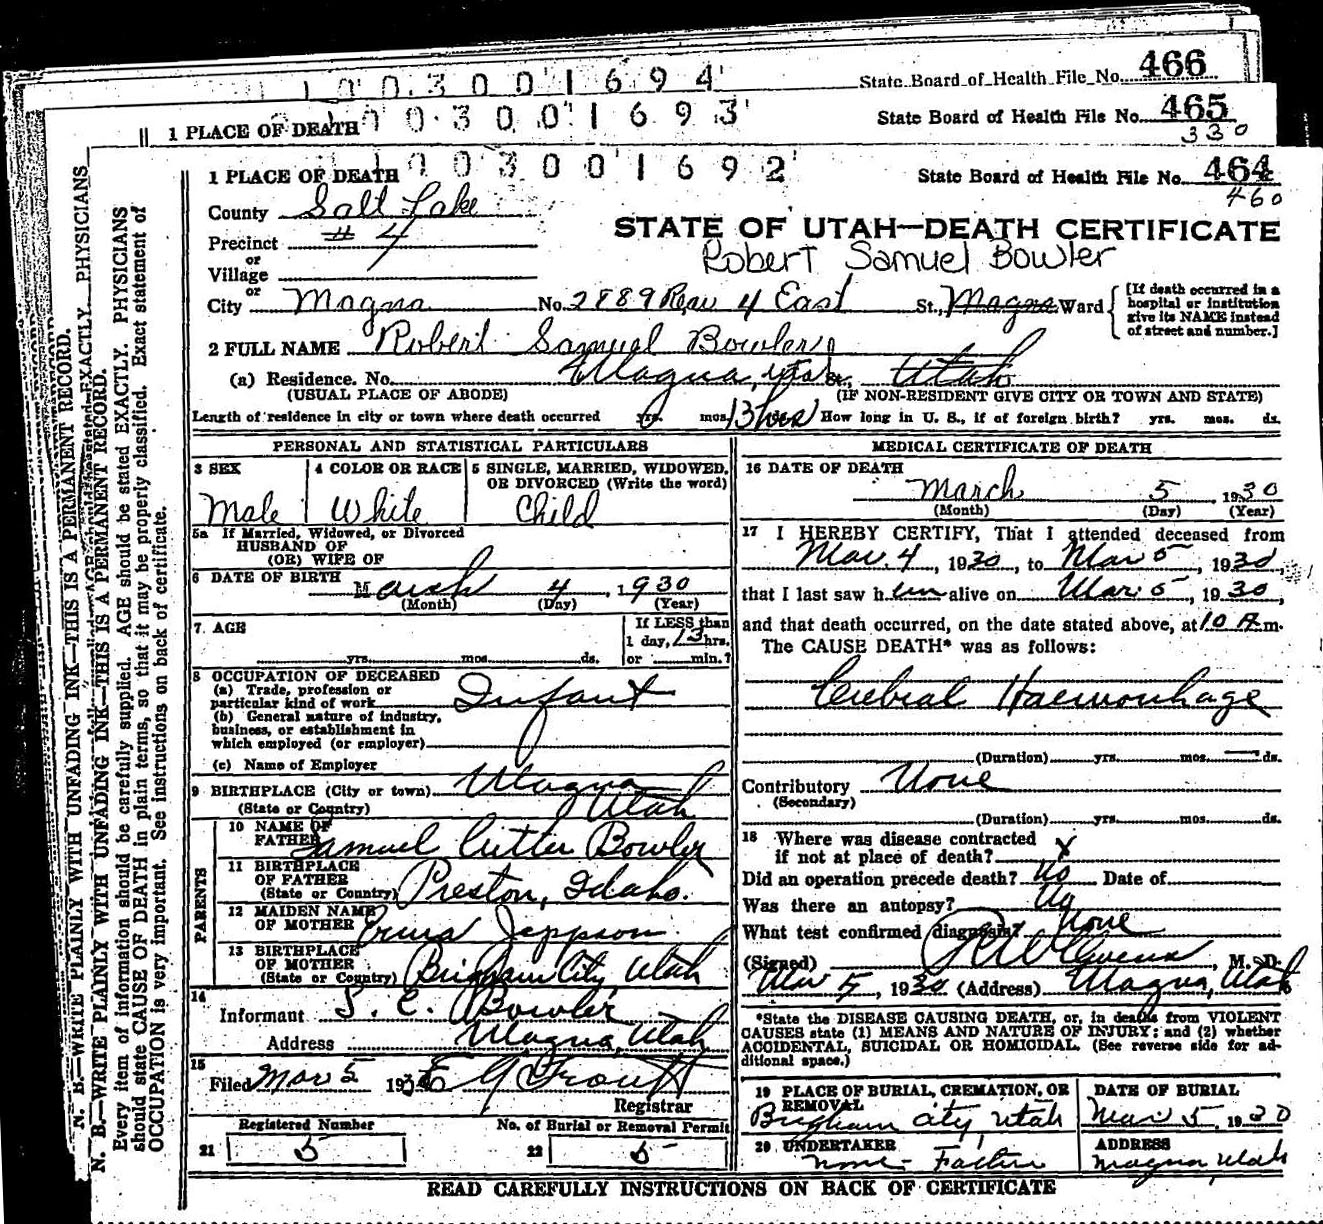 1 0 0 3 0 0 1 6 9 4
State Board of Health File No. 466
1 PLACE OF DEATH
1 0 0 3 0 0 1 6 9 3
State Board of Health File No. 465
330
1 PLACE OF DEATH
1 0 0 3 0 0 1 6 9 2
State Board of Health File No. 464
460
County Salt Lake
STATE OF UTAH—DEATH CERTIFICATE
Precinct # 4
or
Village
Robert Samuel Bowler
or
City Magna No. 2889 Row 4 East St., Magna Ward
[If death occurred in a hospital or institution give its NAME instead of street and number.]
2 FULL NAME Robert Samuel Bowler
(a) Residence. No. Magna, Utah St., Utah
(USUAL PLACE OF ABODE) (IF NON-RESIDENT GIVE CITY OR TOWN AND STATE)
Length of residence in city or town where death occurred yrs. mos. 13 hrs How long in U. S., if of foreign birth? yrs. mos. ds.
PERSONAL AND STATISTICAL PARTICULARS
3 SEX
Male
4 COLOR OR RACE
White
5 SINGLE, MARRIED, WIDOWED, OR DIVORCED (Write the word)
Child
5a If Married, Widowed, or Divorced
HUSBAND OF
(OR) WIFE OF
6 DATE OF BIRTH March 4, 1930
(Month) (Day) (Year)
7 AGE
yrs. mos. ds.
If LESS than
1 day, 13 hrs.
or min.?
8 OCCUPATION OF DECEASED
(a) Trade, profession or
particular kind of work Infant
(b) General nature of industry,
business, or establishment in
which employed (or employer)
(c) Name of Employer
9 BIRTHPLACE (City or town) Magna
(State or Country) Utah
PARENTS
10 NAME OF
FATHER Samuel Cutter Bowler
11 BIRTHPLACE
OF FATHER
(State or Country) Preston, Idaho.
12 MAIDEN NAME
OF MOTHER Erma Jeppson
13 BIRTHPLACE
OF MOTHER
(State or Country) Brigham City, Utah
14
Informant S. C. Bowler
Address Magna, Utah
15
Filed Mar 5 1930
Registrar
Registered Number
21 5
No. of Burial or Removal Permit
22 5
MEDICAL CERTIFICATE OF DEATH
16 DATE OF DEATH
March 5, 1930
(Month) (Day) (Year)
17 I HEREBY CERTIFY, That I attended deceased from
Mar. 4, 1930, to Mar 5, 1930,
that I last saw him alive on Mar. 5, 1930,
and that death occurred, on the date stated above, at 10 A m.
The CAUSE DEATH* was as follows:
Cerebral Haemorrhage
(Duration) yrs. mos. ds.
Contributory None
(Secondary)
(Duration) yrs. mos. ds.
18 Where was disease contracted
if not at place of death? X
Did an operation precede death? No Date of
Was there an autopsy? No
What test confirmed diagnosis? None
(Signed) M. D.
Mar 5, 1930 (Address) Magna, Utah
*State the DISEASE CAUSING DEATH, or, in deaths from VIOLENT
CAUSES state (1) MEANS AND NATURE OF INJURY; and (2) whether
ACCIDENTAL, SUICIDAL OR HOMICIDAL. (See reverse side for ad-
ditional space.)
19 PLACE OF BURIAL, CREMATION, OR
REMOVAL
Brigham City, Utah
DATE OF BURIAL
Mar 5, 1930
20 UNDERTAKER
None - Father
ADDRESS
Magna, Utah
READ CAREFULLY INSTRUCTIONS ON BACK OF CERTIFICATE
N. B.—WRITE PLAINLY WITH UNFADING INK—THIS IS A PERMANENT RECORD.
EXACTLY. PHYSICIANS
N. B.—WRITE PLAINLY WITH UNFADING INK—THIS IS A PERMANENT RECORD.
Every item of information should be carefully supplied. AGE should be stated EXACTLY. PHYSICIANS
should state CAUSE OF DEATH in plain terms, so that it may be properly classified. Exact statement of
OCCUPATION is very important. See instructions on back of certificate.